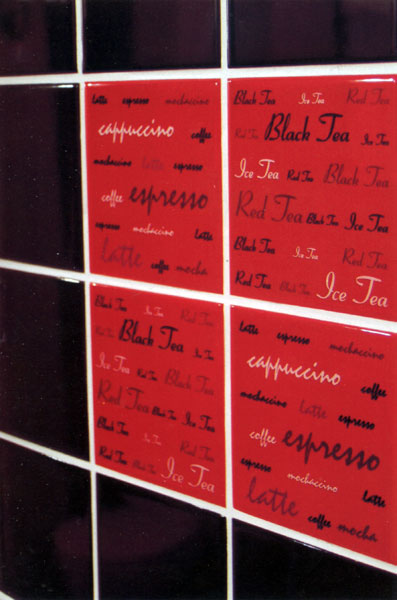 latte espresso mochaccino
cappuccino coffee
mochaccino latte espresso
coffee espresso
espresso mochaccino latte
latte coffee mocha
Black Tea Ice Tea Red Tea
Red Tea Black Tea Ice Tea
Ice Tea Red Tea Black Tea
Red Tea Black Tea Ice Tea
Black Tea Ice Tea Red Tea
Red Tea Black Tea Ice Tea
Black Tea Ice Tea Red Tea
Red Tea Black Tea Ice Tea
Ice Tea Red Tea Black Tea
Red Tea Black Tea Ice Tea
Black Tea Ice Tea Red Tea
Red Tea Black Tea Ice Tea
latte espresso mochaccino
cappuccino coffee
mochaccino latte espresso
coffee espresso
espresso mochaccino latte
latte coffee mocha